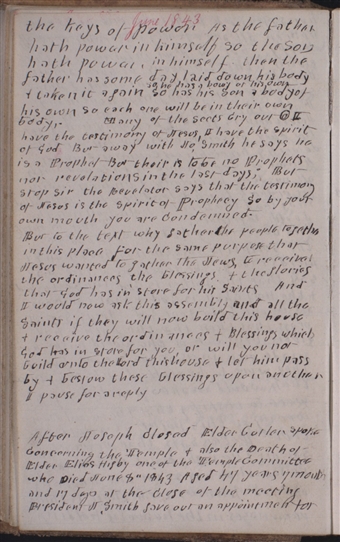 June 1843
the keys of power As the father
hath power in himself so the Son
hath power in himself. then the
father has some day laid down his body
so he has a body of his own
& taken it again so has his Son a body of
his own so each one will be in their own
body. Many of the sects Cry out O I
have the testimony of Jesus, I have the spirit
of God. But away with Jo, Smith he says he
is a Prophet But their is to be no Prophets
nor revelations in the last days; But
stop Sir the Revelator says that the testimony
of Jesus is the spirit of Prophecy So by your
own mouth you are Condemned.
But to the text why gather the people together
in this place for the same purpose that
Jesus wanted to gather the Jews, to receive
the ordinances the blessings & the glories
that God has in store for his Saints And
I would now ask this assembly and all the
Saints if they will now build this house
& receive the ordinances & Blessings which
God has in store for you, or will you not
build unto the Lord this house & let him pass
by & bestow these blessings upon another
I pause for a reply

After Joseph closed Elder Cutler spoke
Concerning the Temple & also the Death of
Elder Elias Higby one of the Temple Committee
who Died June 8th 1843 Aged 47 years months
and 17 days at the Close of the meeting
President J, Smith gave out an appointment for